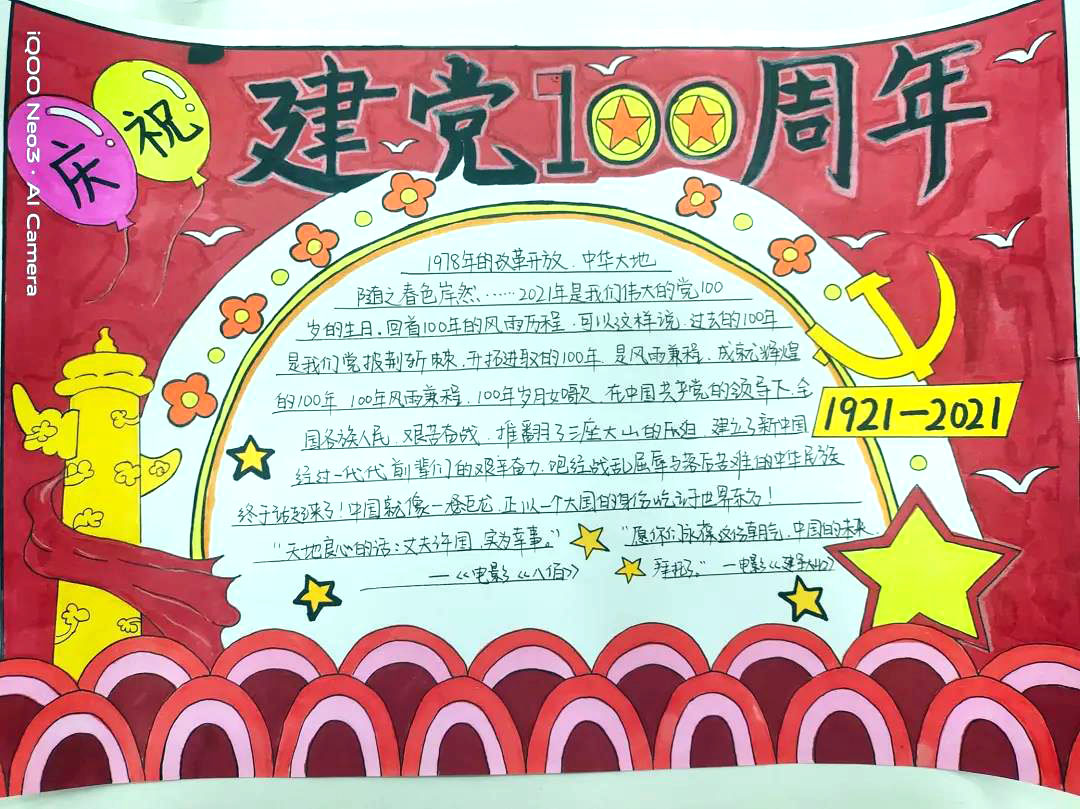 iQOO Neo3 · AI Camera
庆祝
建党100周年
1978年的改革开放、中华大地
随之春色岸然……2021年是我们伟大的党100
岁的生日,回首100年的风雨历程,可以这样说,过去的100年
是我们党披荆斩棘、开拓进取的100年,是风雨兼程、成就辉煌
的100年 100年风雨兼程,100年岁月如歌 在中国共产党的领导下,全
国各族人民,艰苦奋战,推翻了三座大山的压迫 建立了新中国
经过一代代前辈们的艰辛奋力,饱经战乱屈辱与落后苦难的中华民族
终于站起来了!中国就像一条巨龙,正以一个大国的身份屹立于世界东方!
"天地良心的话:丈夫许国,实为幸事。"
——《电影《八佰》
"愿你们永葆这份朝气,中国的未来,
拜托了。" —电影《建军大业》
1921—2021